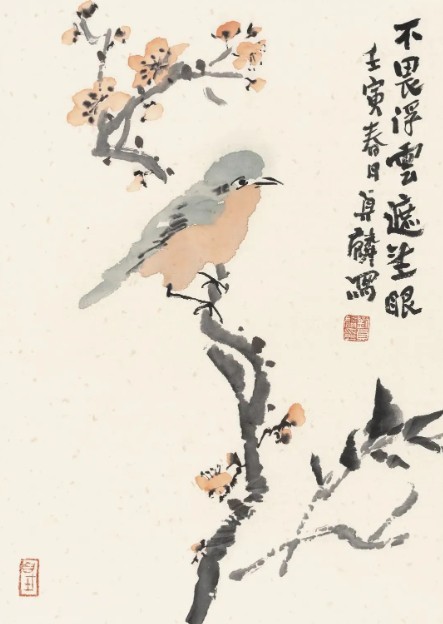 不畏浮雲遮望眼
壬寅春日麟寫